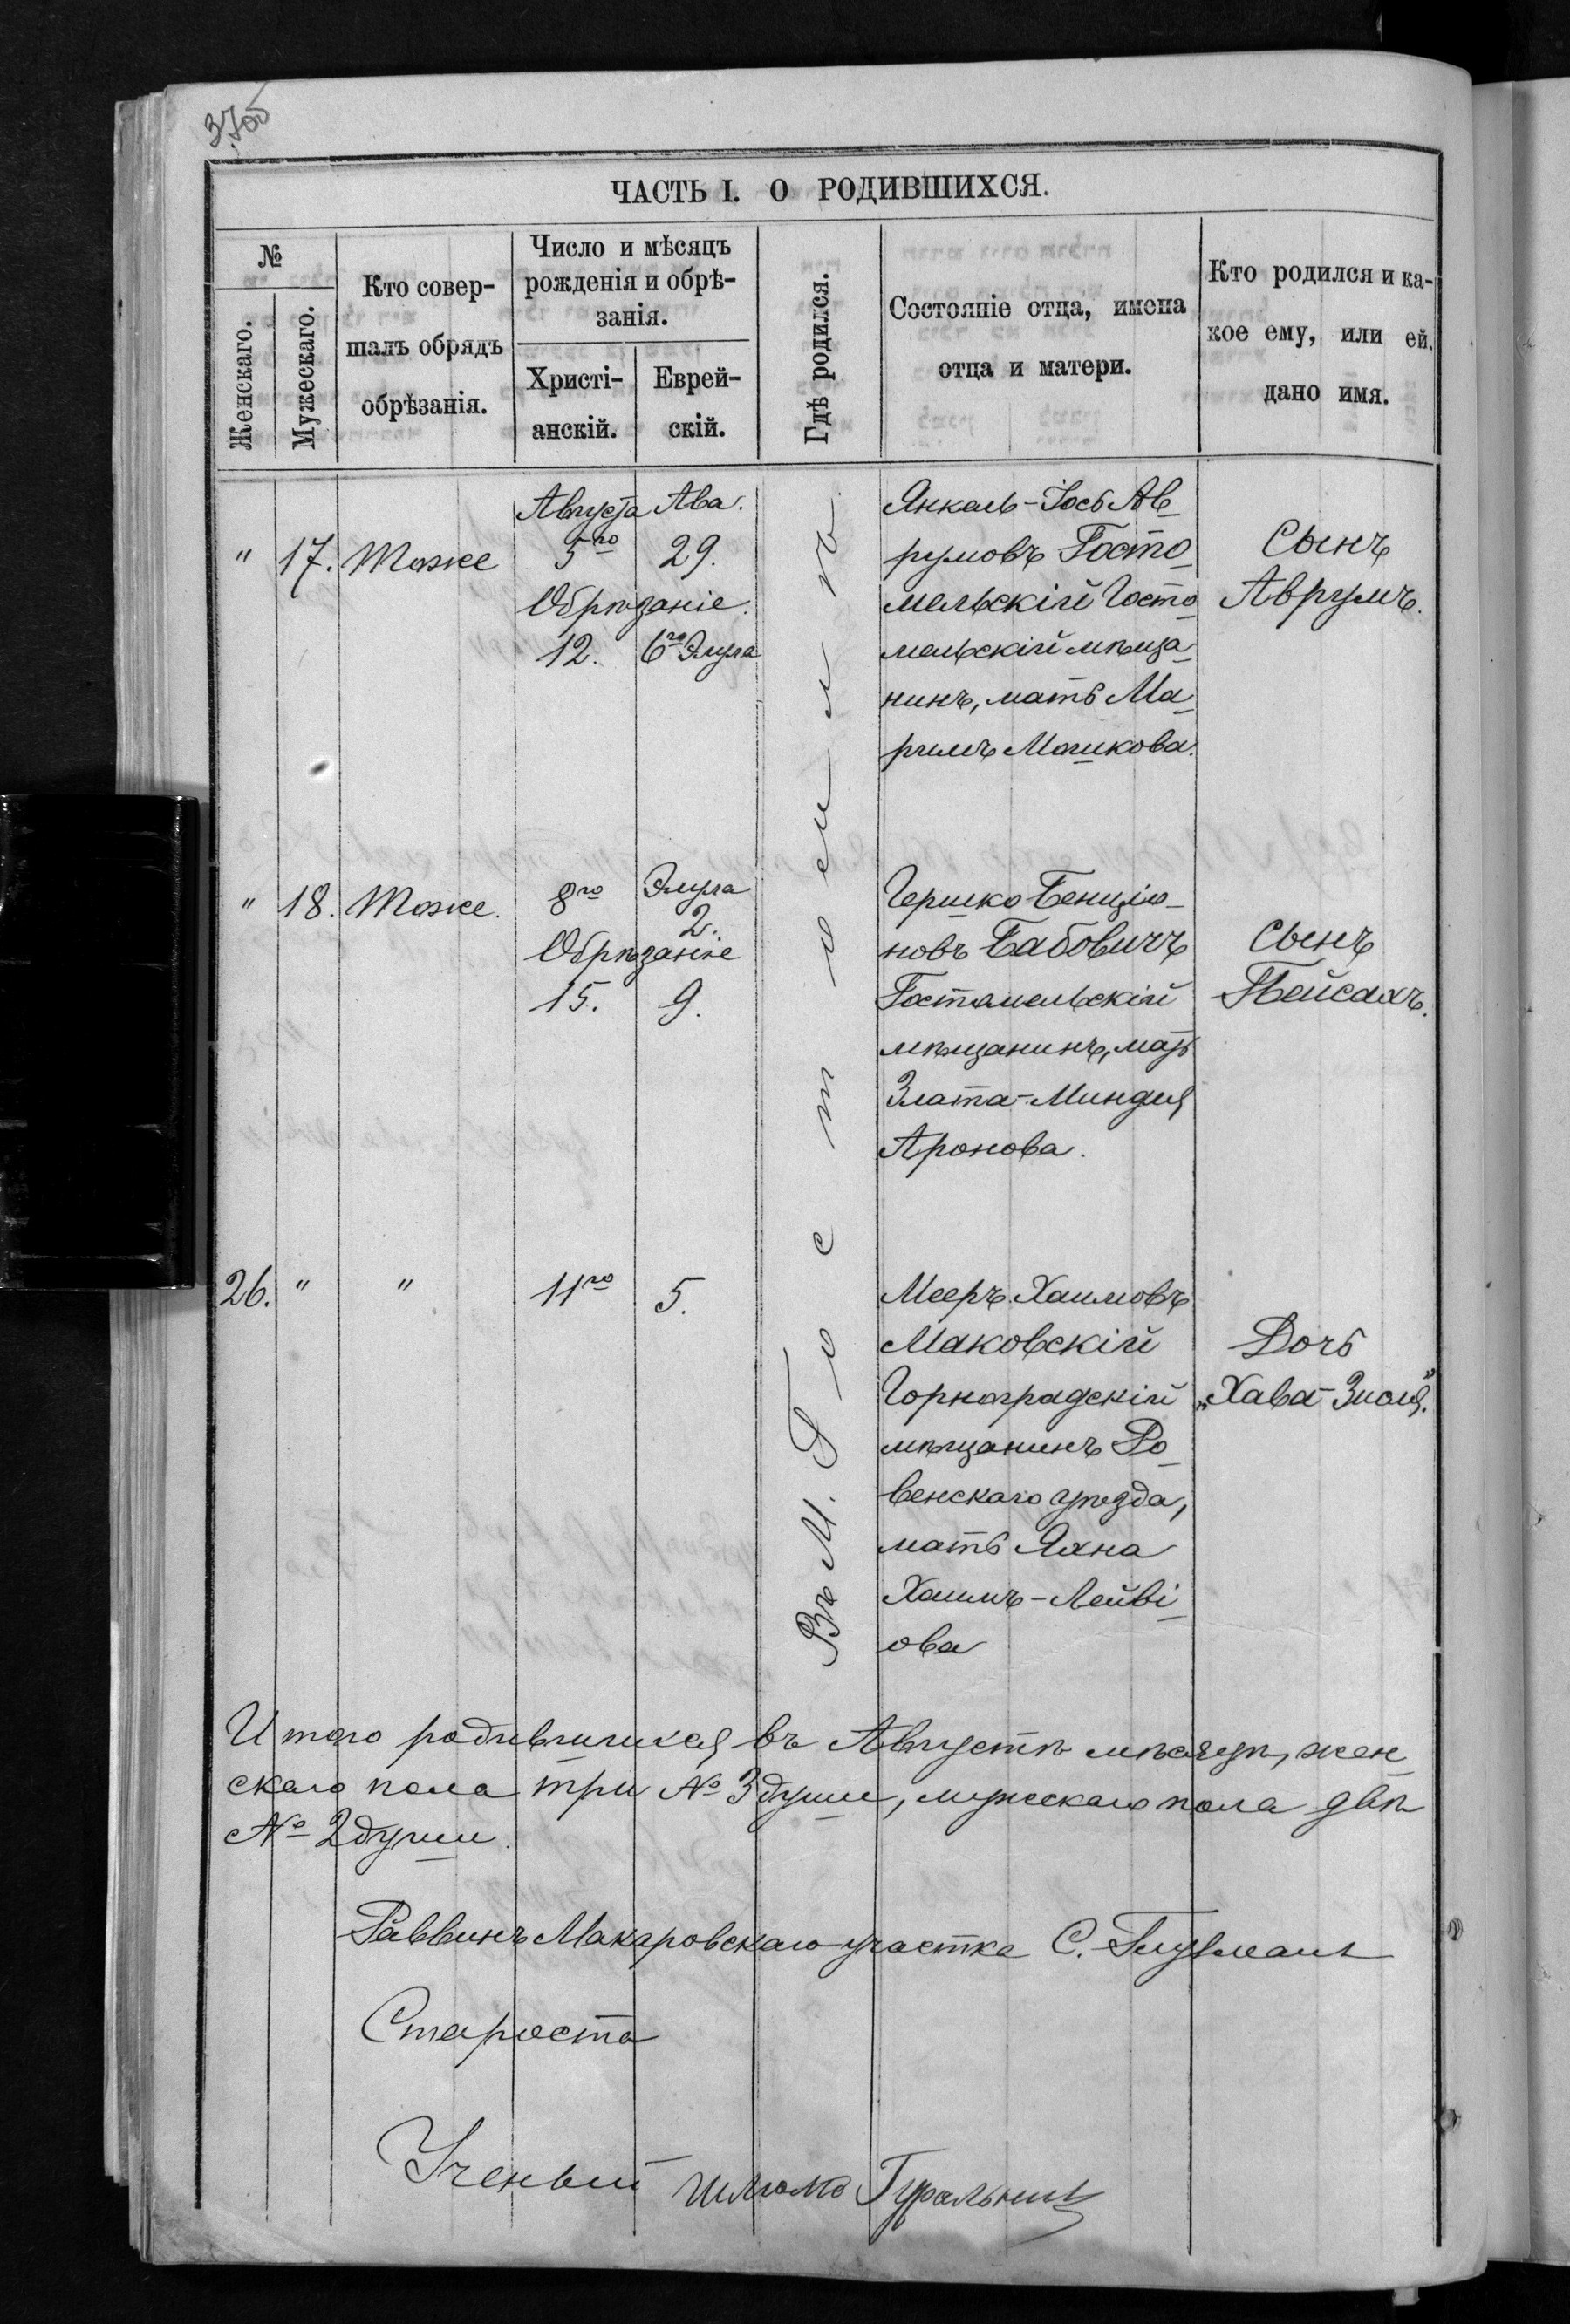 ЧАСТЬ I. О РОДИВШИХСЯ.
№
Женскаго.
Мужескаго.
Кто совер-
шалъ обрядъ
обрѣзанія.
Число и мѣсяцъ
рожденія и обрѣ-
занія.
Христі-
анскій.
Еврей-
скій.
Гдѣ родился.
Состояніе отца, имена
отца и матери.
Кто родился и ка-
кое ему, или ей,
дано имя.
Августа Ава.
" 17. Тоже 5го 29.
Обрѣзаніе.
12. 6го Элула
Янкель-Іось Ав-
румовъ Госто-
мельскій Госто-
мельскій мѣща-
нинъ, мать Ма-
римъ Мошкова.
Сынъ
Аврумъ.
" 18. Тоже. 8го Элула
2.
Обрѣзаніе
15. 9.
Гершко Бенціо-
новъ Бабовичъ
Гостомельскій
мѣщанинъ, мать
Злата-Миндля
Аронова.
Сынъ
Пейсахъ.
26. " " 11го 5.
Мееръ Хаимовъ
Маковскій
Горноградскій
мѣщанинъ Ро-
венскаго уѣзда,
мать Яхна
Хаимъ-Лейві-
ова
Дочь
„Хава-Зисля."
Въ М. Гостомелѣ
Итого родившихся въ Августѣ мѣсяцѣ, жен-
скаго пола три № 3 души, мужескаго пола двѣ
№ 2 души.
Раввинъ Макаровскаго участка С.
Староста
Ученый Шлома Гуральник